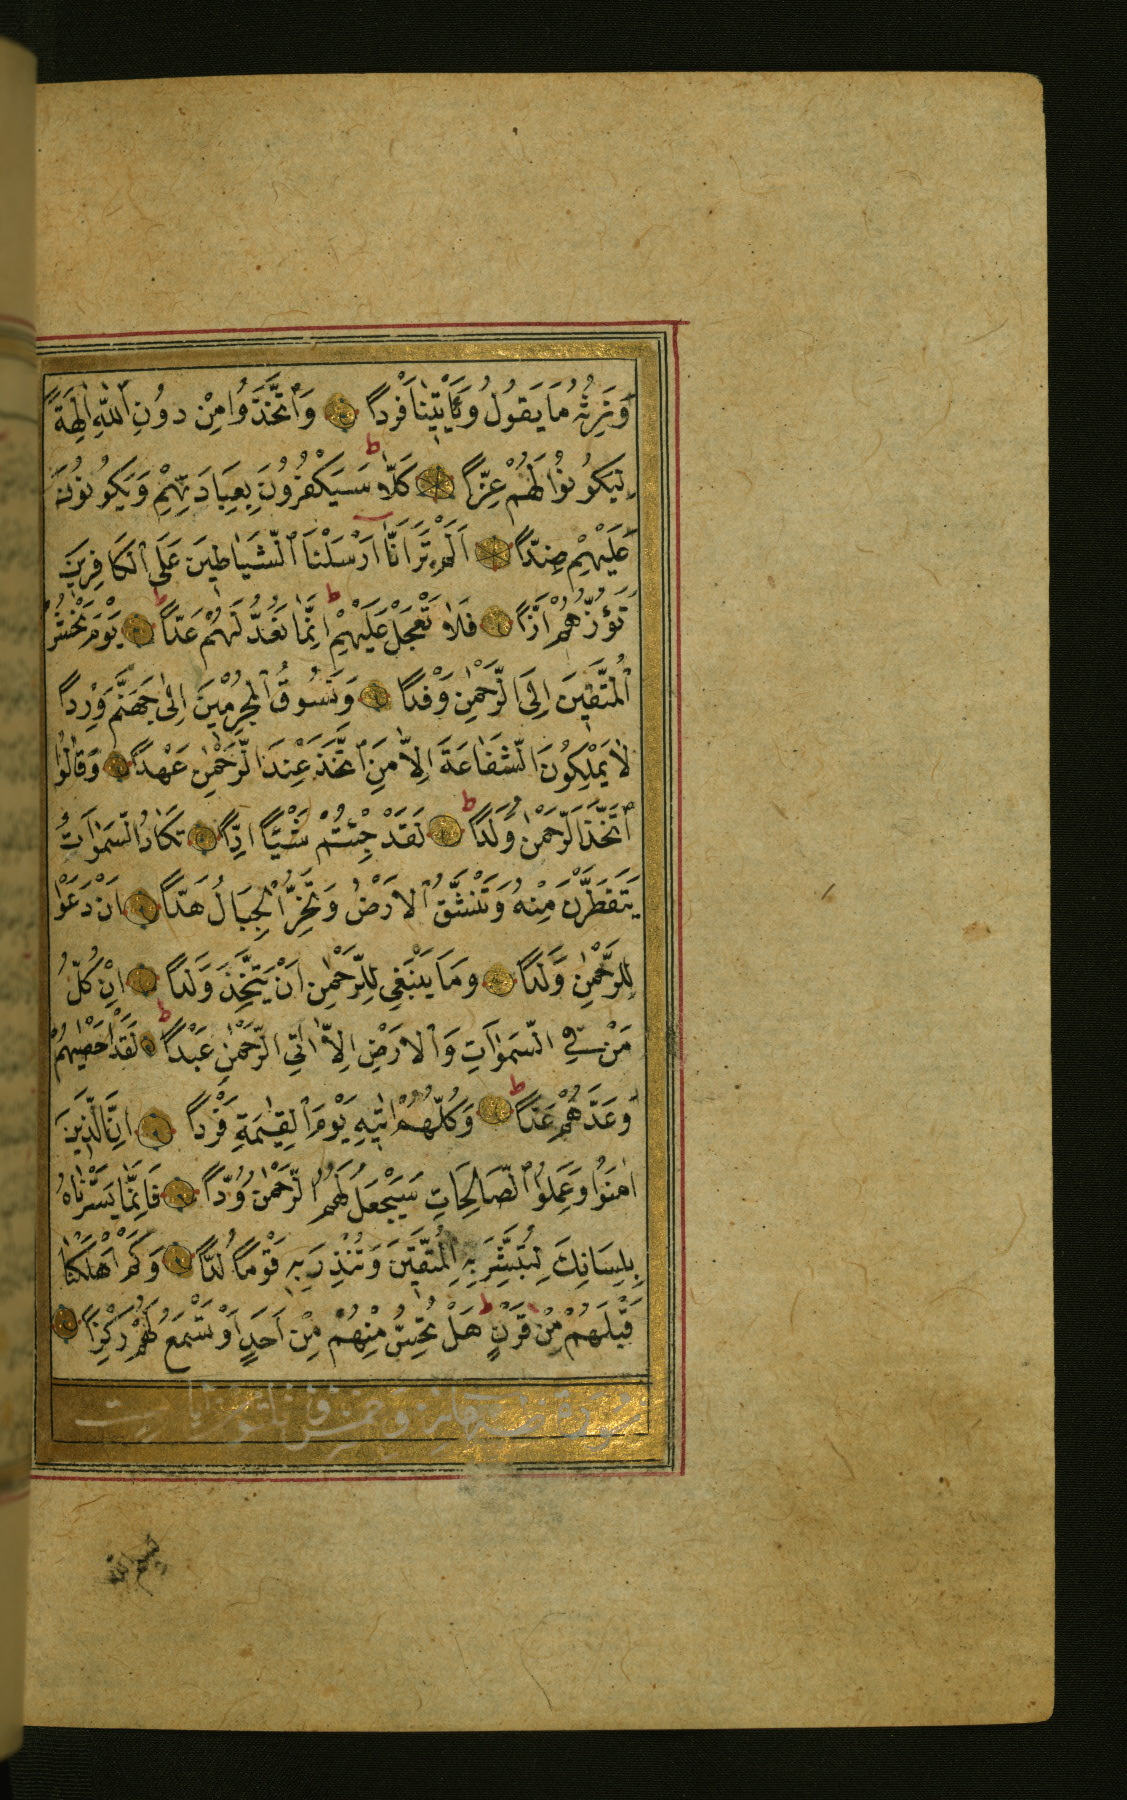 وَنَرِثُهُ مَا يَقُولُ وَيَأْتِينَا فَرْدًا وَاتَّخَذُوا مِنْ دُونِ اللّٰهِ اٰلِهَةً
لِيَكُونُوا لَهُمْ عِزًّا كَلَّا سَيَكْفُرُونَ بِعِبَادَتِهِمْ وَيَكُونُونَ
عَلَيْهِمْ ضِدًّا اَلَمْ تَرَ اَنَّا اَرْسَلْنَا الشَّيَاطِينَ عَلَى الْكَافِرِينَ
تَؤُزُّهُمْ اَزًّا فَلَا تَعْجَلْ عَلَيْهِمْ اِنَّمَا نَعُدُّ لَهُمْ عَدًّا يَوْمَ نَحْشُرُ
الْمُتَّقِينَ اِلَى الرَّحْمٰنِ وَفْدًا وَنَسُوقُ الْمُجْرِمِينَ اِلٰى جَهَنَّمَ وِرْدًا
لَا يَمْلِكُونَ الشَّفَاعَةَ اِلَّا مَنِ اتَّخَذَ عِنْدَ الرَّحْمٰنِ عَهْدًا وَقَالُوا
اتَّخَذَ الرَّحْمٰنُ وَلَدًا لَقَدْ جِئْتُمْ شَيْئًا اِدًّا تَكَادُ السَّمٰوَاتُ
يَتَفَطَّرْنَ مِنْهُ وَتَنْشَقُّ الْاَرْضُ وَتَخِرُّ الْجِبَالُ هَدًّا اَنْ دَعَوْا
لِلرَّحْمٰنِ وَلَدًا وَمَا يَنْبَغِي لِلرَّحْمٰنِ اَنْ يَتَّخِذَ وَلَدًا اِنْ كُلُّ
مَنْ فِي السَّمٰوَاتِ وَالْاَرْضِ اِلَّا اٰتِي الرَّحْمٰنِ عَبْدًا لَقَدْ اَحْصٰيهُمْ
وَعَدَّهُمْ عَدًّا وَكُلُّهُمْ اٰتِيهِ يَوْمَ الْقِيٰمَةِ فَرْدًا اِنَّ الَّذِينَ
اٰمَنُوا وَعَمِلُوا الصَّالِحَاتِ سَيَجْعَلُ لَهُمُ الرَّحْمٰنُ وُدًّا فَاِنَّمَا يَسَّرْنَاهُ
بِلِسَانِكَ لِتُبَشِّرَ بِهِ الْمُتَّقِينَ وَتُنْذِرَ بِهِ قَوْمًا لُدًّا وَكَمْ اَهْلَكْنَا
قَبْلَهُمْ مِنْ قَرْنٍ هَلْ تُحِسُّ مِنْهُمْ مِنْ اَحَدٍ اَوْ تَسْمَعُ لَهُمْ رِكْزًا
سورة
بسم الله